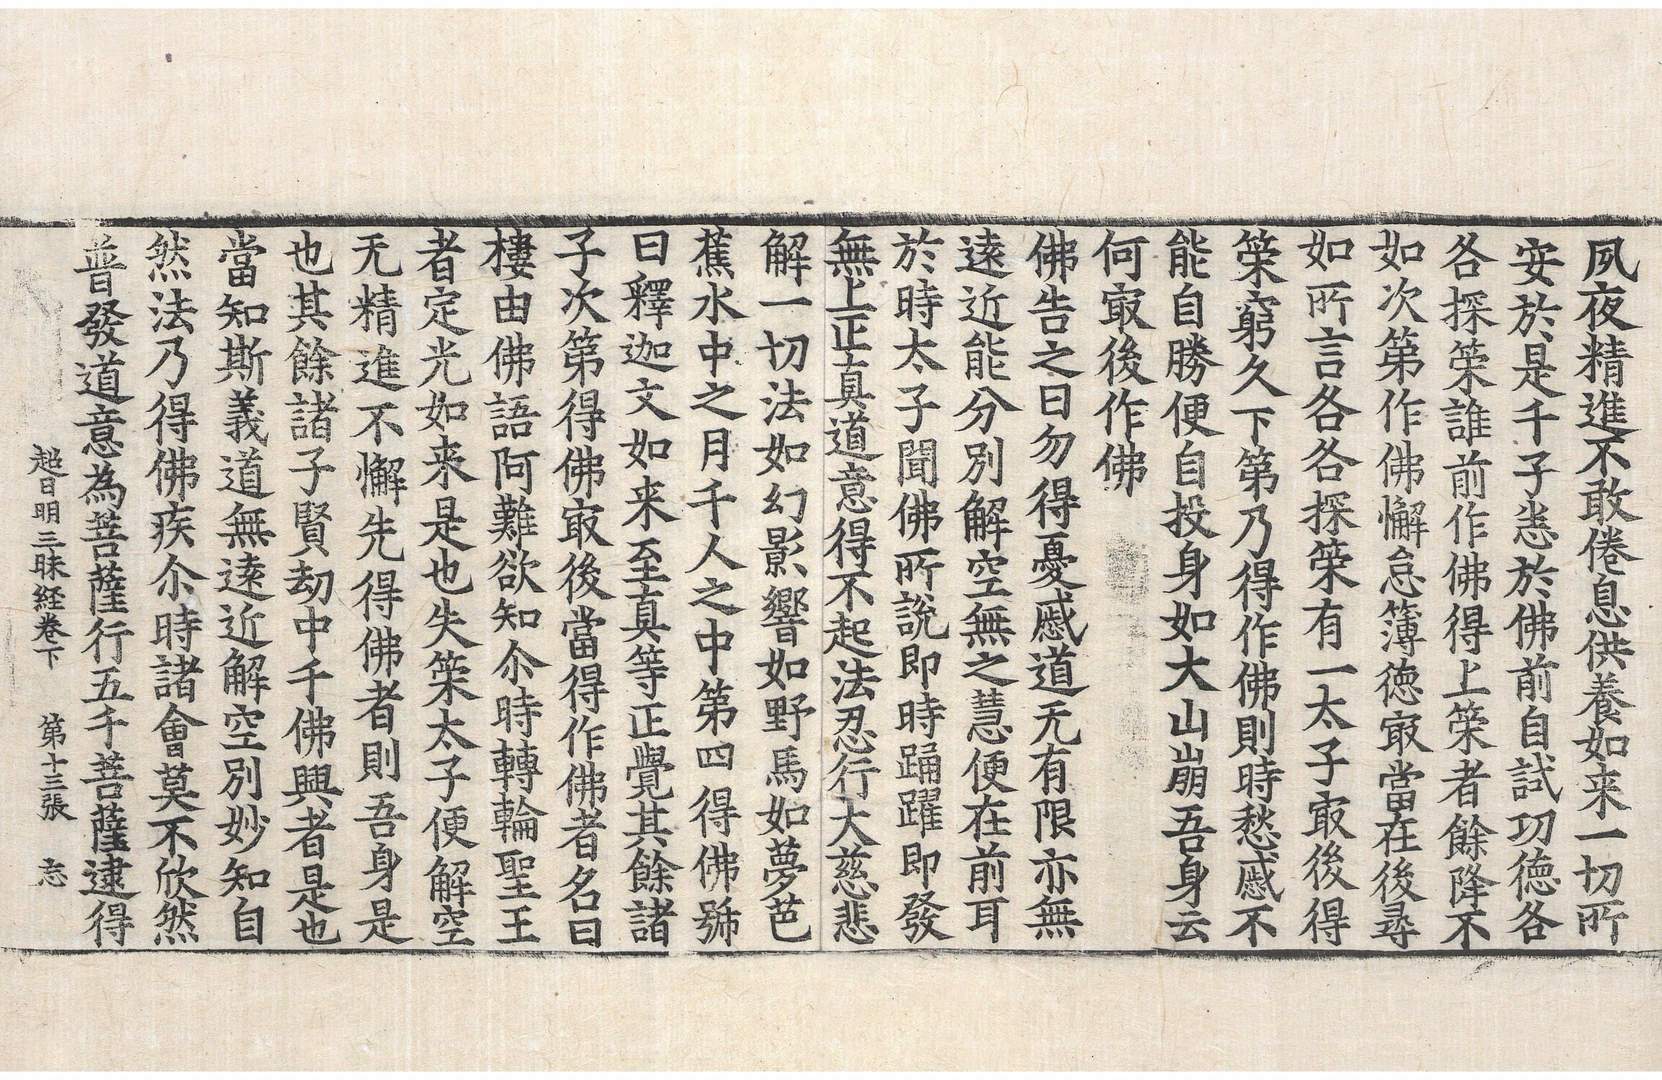 夙夜精進不敢倦息供養如来一切所
安於是千子恙於佛前自試功徳各
各探筞誰前作佛得上筞者餘降不
如次第作佛懈怠簿徳㝡當在後尋
如所言各各探筞有一太子㝡後得
筞窮久下第乃得作佛則時愁慼不
能自勝便自投身如大山崩吾身云
何㝡後作佛
佛告之曰勿得憂慼道无有限亦無
逺近能分別解空無之慧便在前耳
於時太子聞佛所説即時踊躍即發
無上正真道意得不起法忍行大慈悲
解一切法如幻影響如野馬如夢芭
蕉水中之月千人之中第四得佛號
曰釋迦文如来至真等正覺其餘諸
子次第得佛㝡後當得作佛者名曰
樓由佛語阿難欲知尒時轉輪聖王
者定光如来是也失筞太子便解空
无精進不懈先得佛者則吾身是
也其餘諸子賢劫中千佛興者是也
當知斯義道無逺近解空別妙知自
然法乃得佛疾尒時諸會莫不欣然
普發道意為菩薩行五千菩薩逮得
超日明三昧経卷下　第十三張　忘